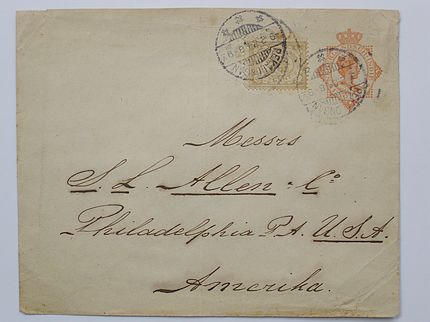 Messrs
S. L. Allen & Co
Philadelphia P.A. U.S.A.
Amerika.